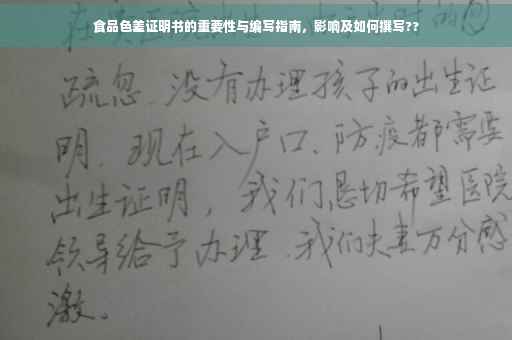 食品色差证明书的重要性与编写指南，影响及如何撰写??
在
时的
疏忽、没有办理孩子的出生证
明、现在入户口、防疫都需要
出生证明，我们恳切希望医院
领导给予办理、我们夫妻万分感
激。